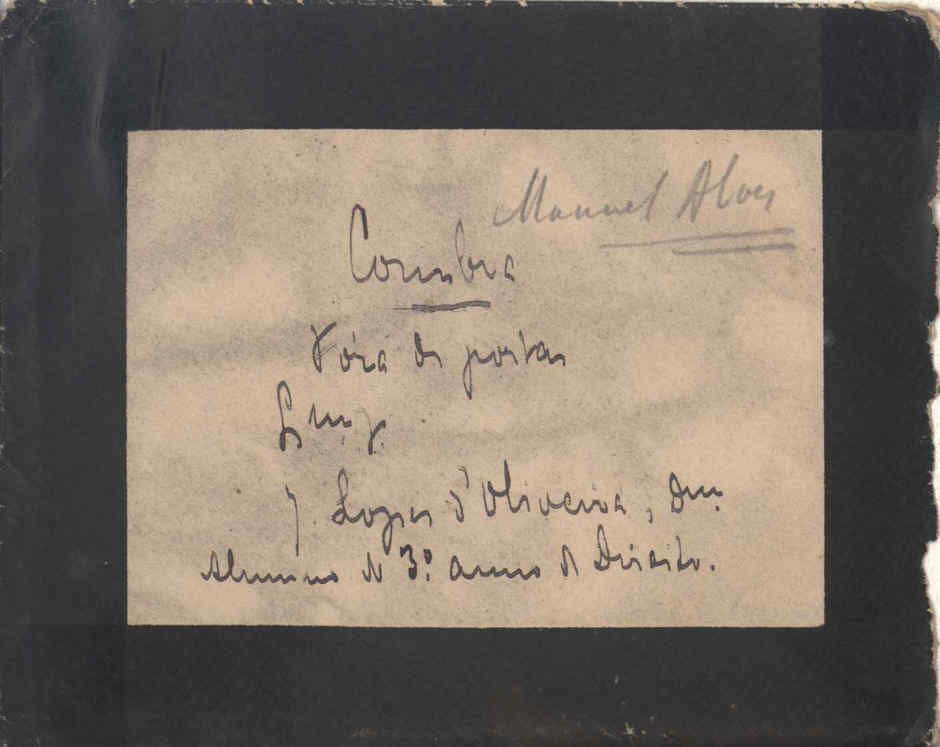 Manuel Alves
Coimbra
Fóra de portas
J. Lopes d'Oliveira, Dm.
Alumno do 3.º anno de Direito.